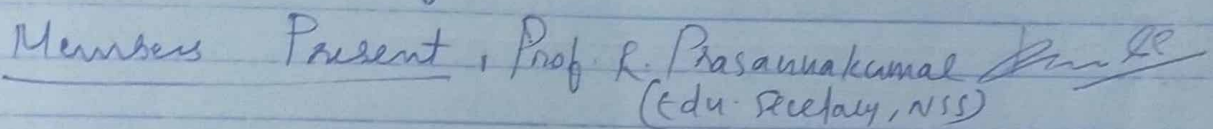 Members Present, Prof R. Prasannakumar
(Edu. Secretary, NSS)